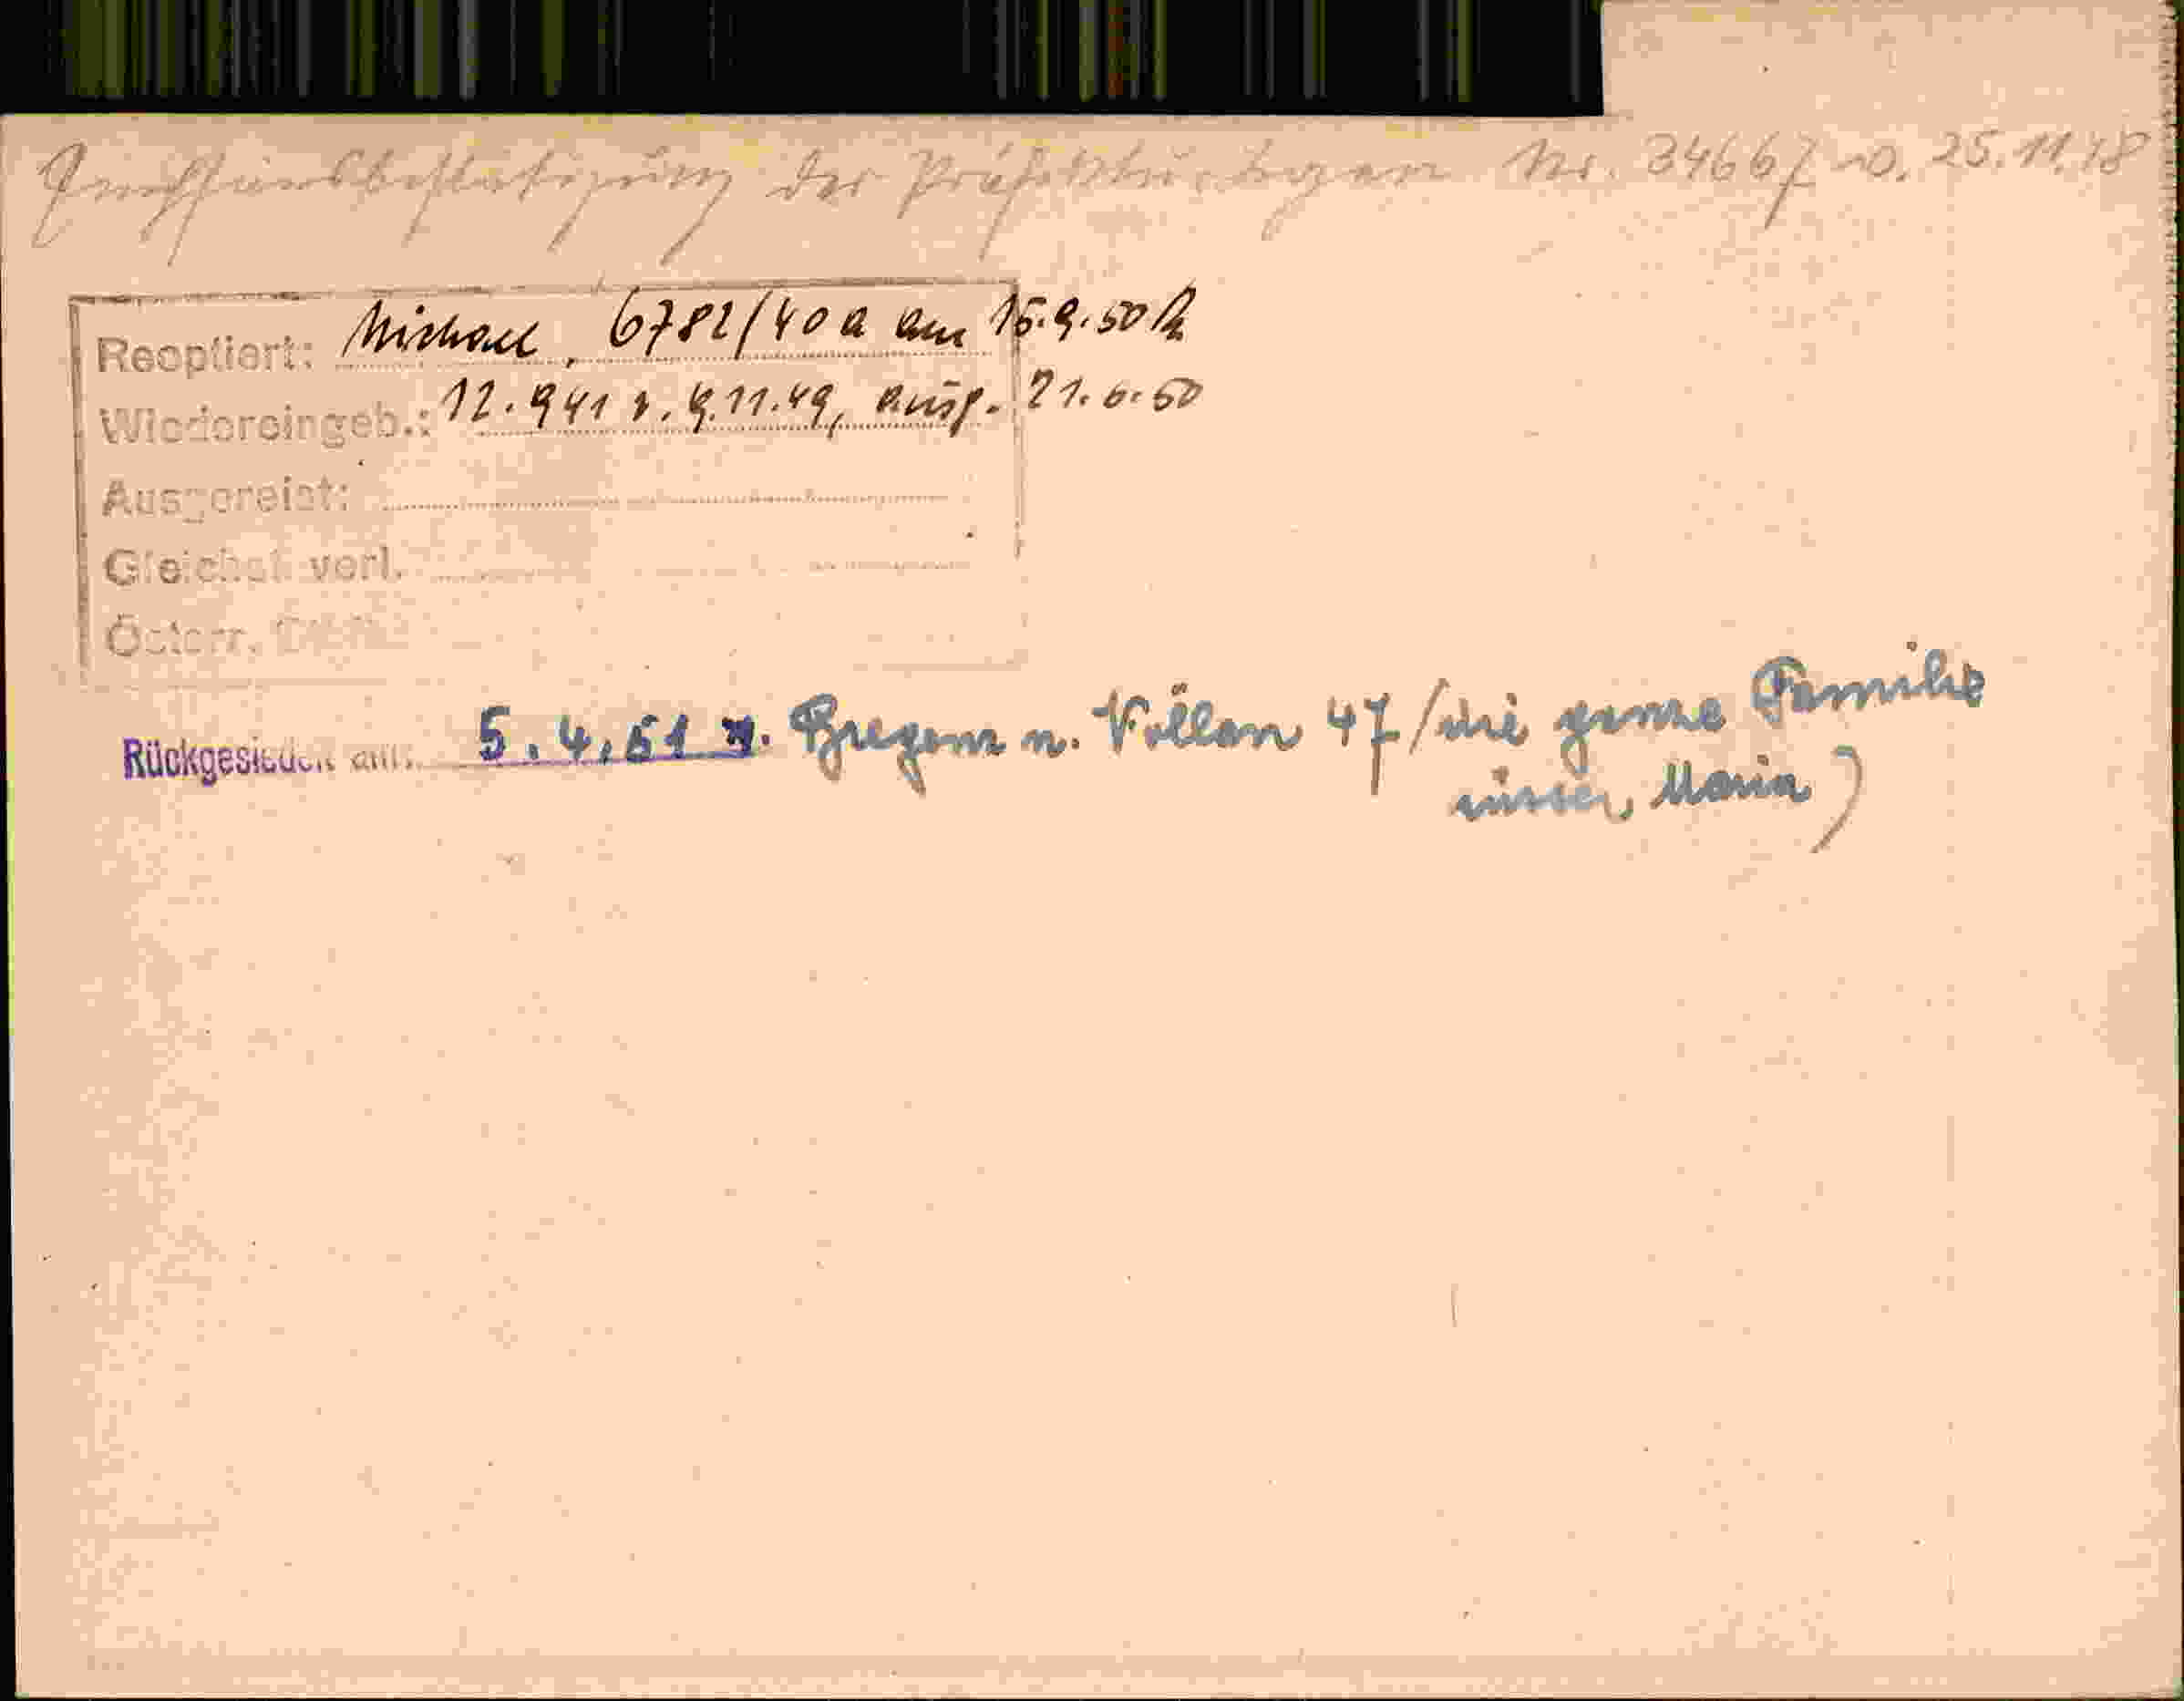 der Präfektur Bozen Nr. 34667 v. 25.11.48
Reoptiert: Michael, 6782/40 a am 15.9.50
Wiedereingeb.: 12.941 v. 9.11.49, ausg. 21.6.50
Ausgereist:
Gleichst. verl.
Österr.
Rückgesiedelt am: 5.4.51 v. Bregenz n. Völlan 47/die ganze Familie
ausser, Maria)